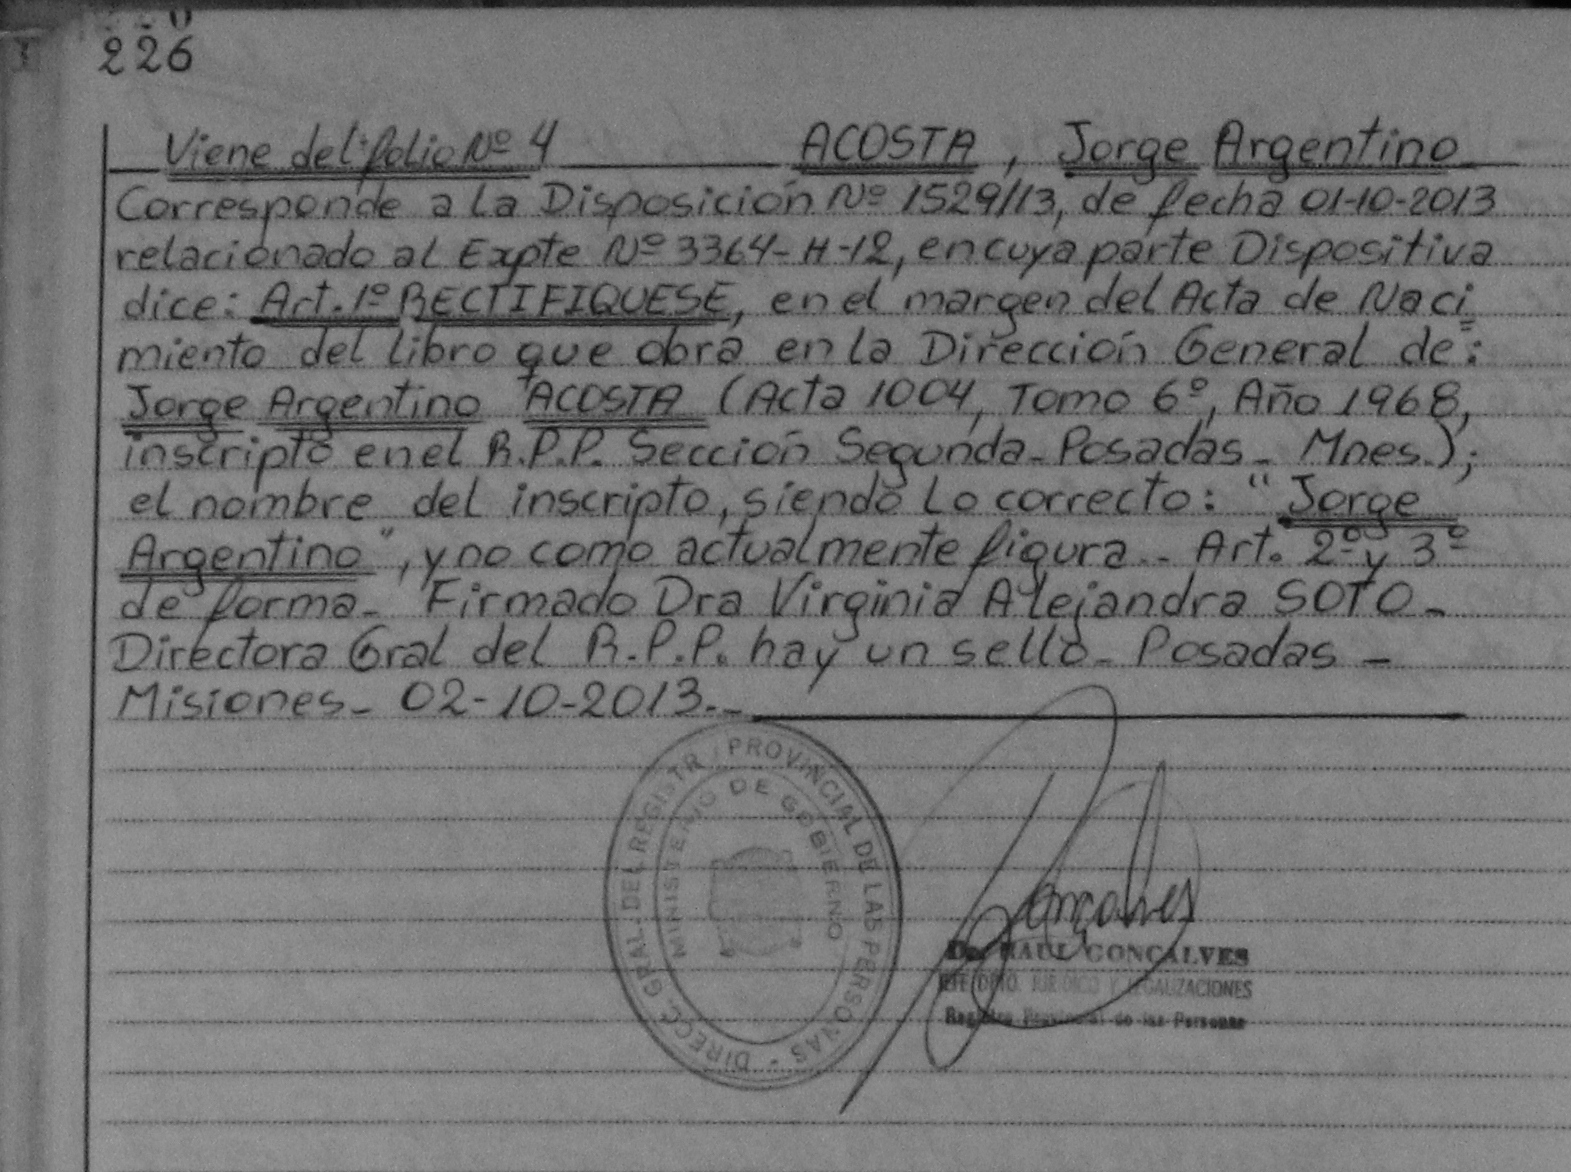 226
Viene del folio Nº 4 ACOSTA, Jorge Argentino
Corresponde a la Disposición Nº 1529/13, de fecha 01-10-2013
relacionado al Expte Nº 3364-H-12, en cuya parte Dispositiva
dice: Art. 1º RECTIFIQUESE, en el margen del Acta de Naci
miento del libro que obra en la Dirección General de:
Jorge Argentino ACOSTA (Acta 1004, Tomo 6º, Año 1968,
inscripto en el R.P.P. Sección Segunda - Posadas - Mnes.);
el nombre del inscripto, siendo lo correcto: "Jorge
Argentino", y no como actualmente figura.- Art. 2º y 3º
de forma - Firmado Dra Virginia Alejandra SOTO -
Directora Gral del R.P.P. hay un sello - Posadas -
Misiones - 02-10-2013.-
DIRECC. GRAL. DEL REGISTR PROVINCIAL DE LAS PERSONAS -
MINISTERIO DE GOBIERNO
Gonçalves
Dr. RAUL GONCALVES
JEFE DPTO. JURIDICO Y LEGALIZACIONES
Registro Provincial de las Personas